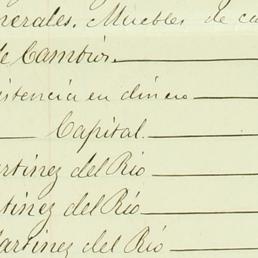 nerales, Muebles de ca
de Cambios.
istencia en dinero
Capital.
artinez del Rio
rtinez del Rio
Martinez del Rio